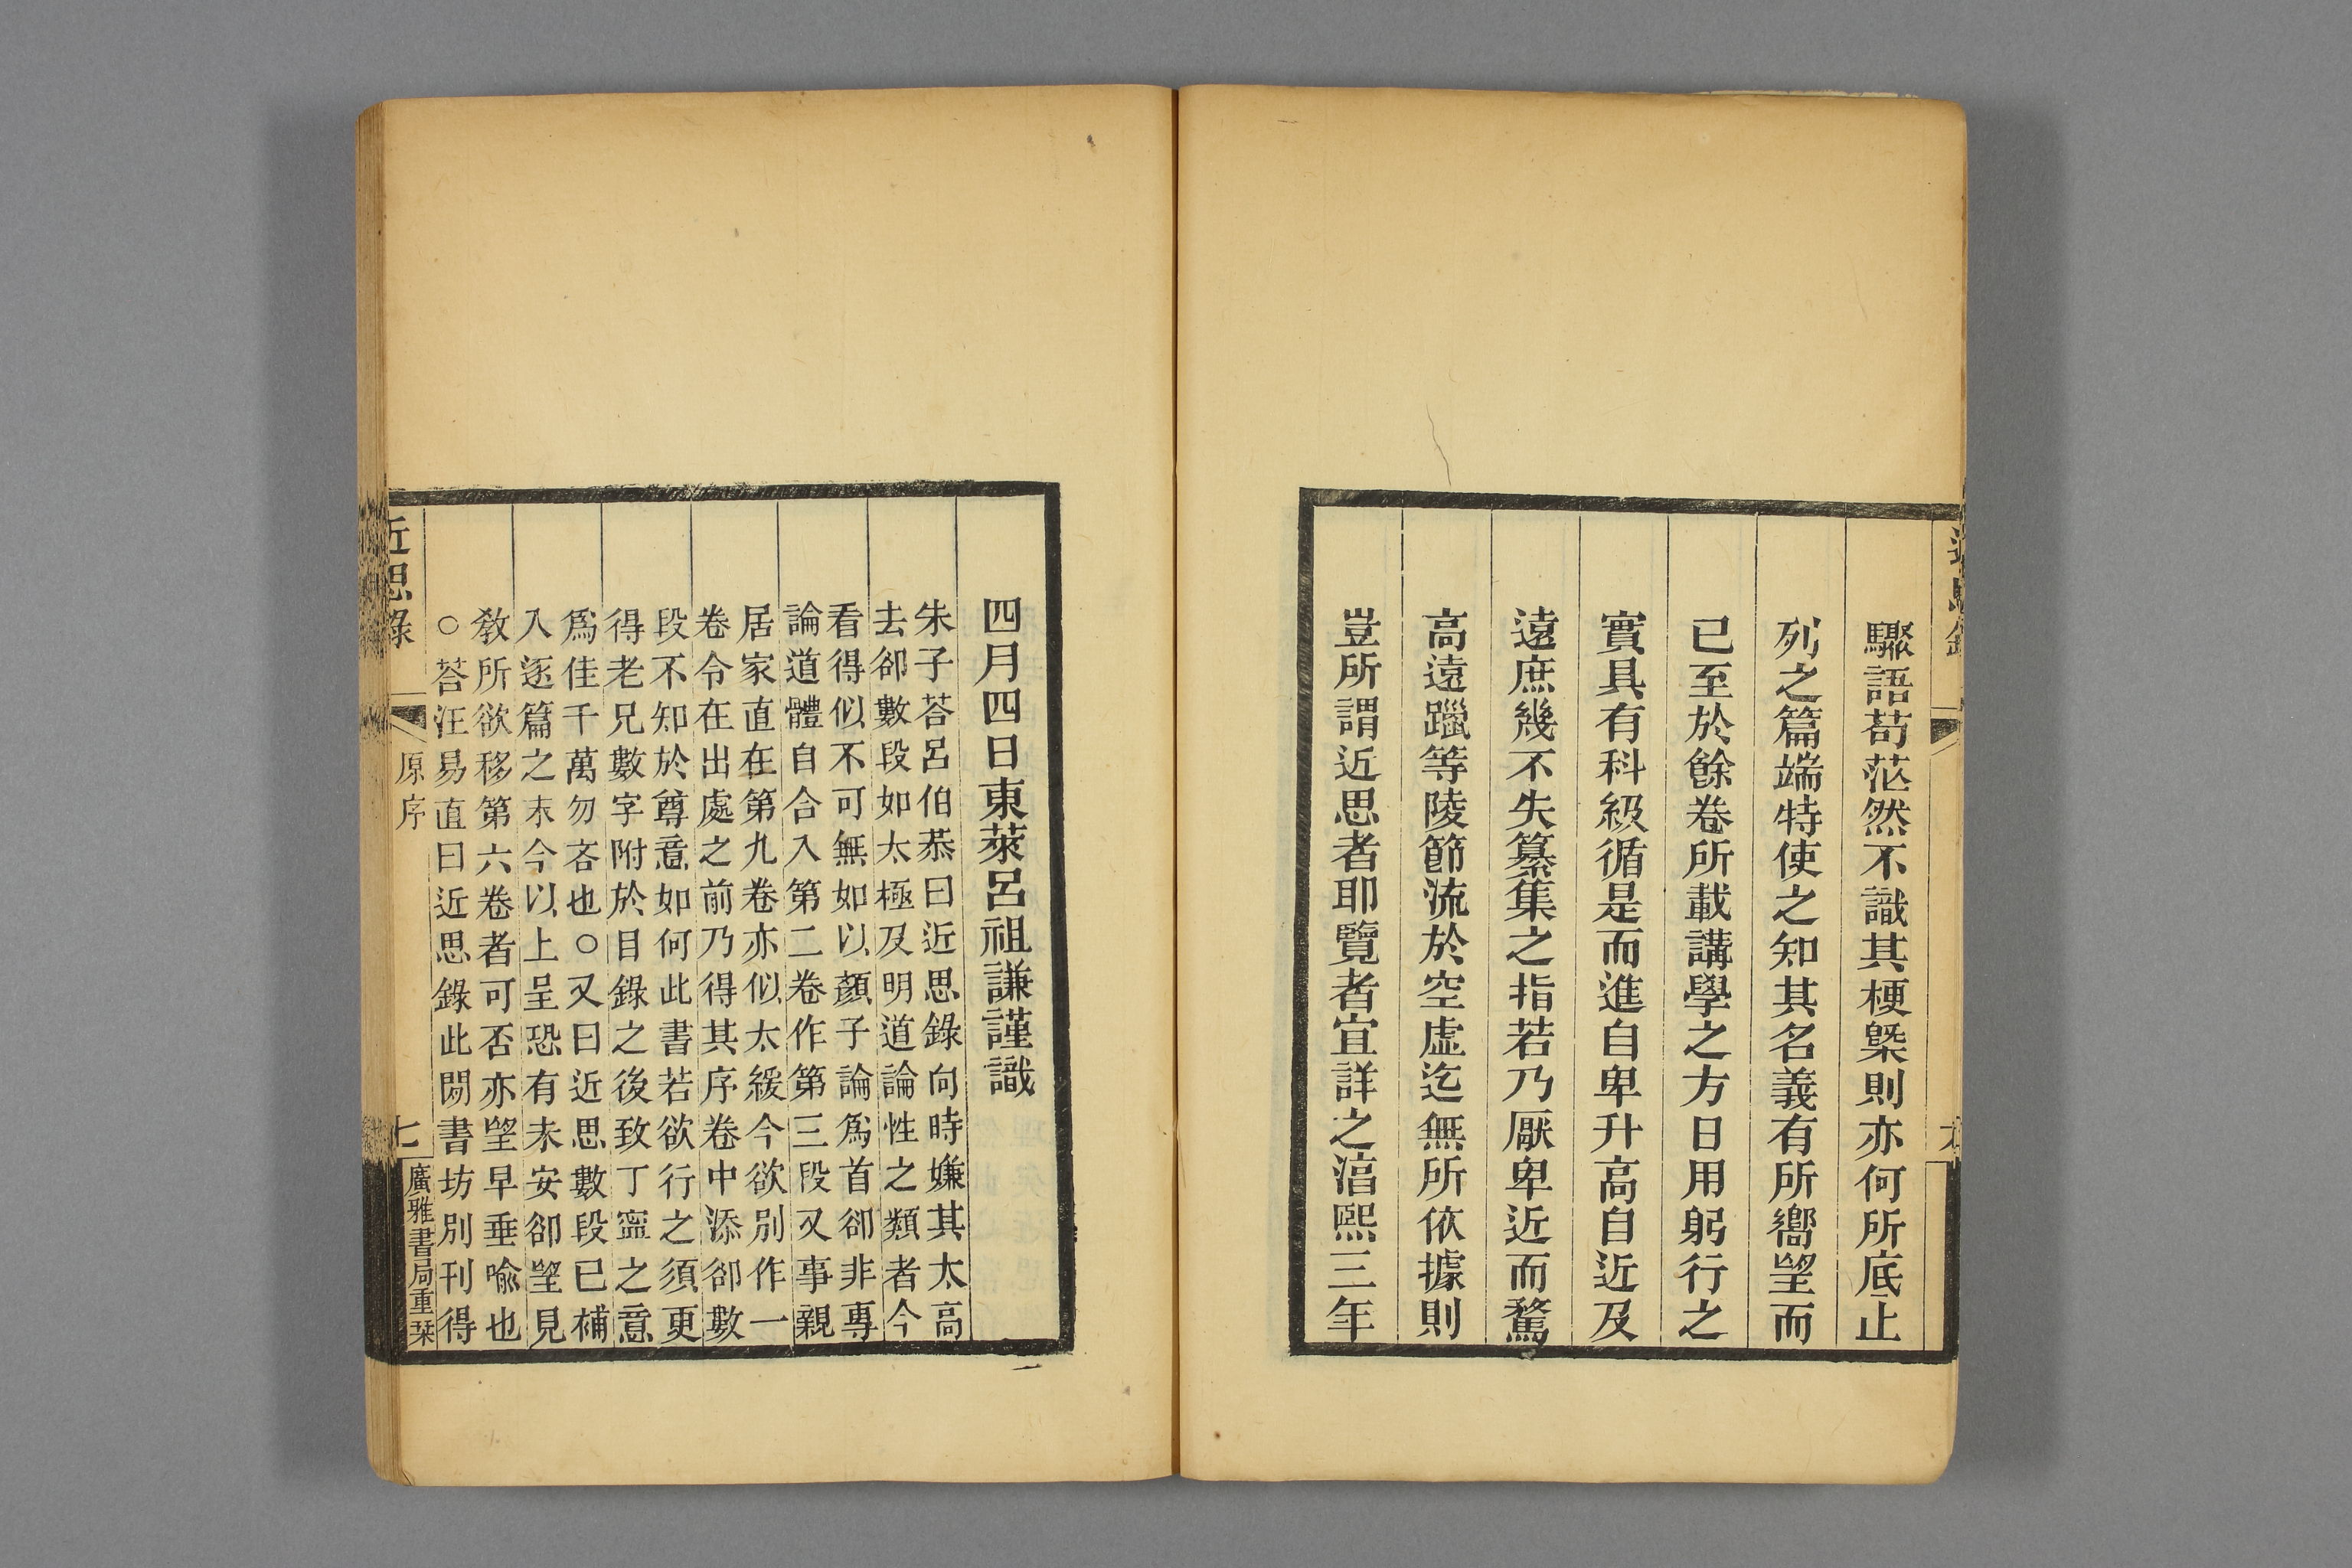 驟語苟茫然不識其梗槩則亦何所底止
列之篇端特使之知其名義有所嚮望而
已至於餘卷所載講學之方日用躬行之
實具有科級循是而進自卑升高自近及
遠庶幾不失纂集之指若乃厭卑近而騖
高遠躐等陵節流於空虛迄無所依據則
豈所謂近思者耶覽者宜詳之淳熙三年
四月四日東萊呂祖謙謹識
朱子荅呂伯恭曰近思錄向時嫌其太高
去卻數段如太極及明道論性之類者今
看得似不可無如以顏子論爲首卻非專
論道體自合入第二卷作第三段又事親
居家直在第九卷亦似太緩今欲別作一
卷令在出處之前乃得其序卷中添卻數
段不知於尊意如何此書若欲行之須更
得老兄數字附於目錄之後致丁寧之意
爲佳千萬勿吝也○又曰近思數段已補
入逐篇之末今以上呈恐有未安卻望見
敎所欲移第六卷者可否亦望早垂喻也
○荅汪易直曰近思錄此閒書坊別刊得
近思錄
原序
七
廣雅書局重栞